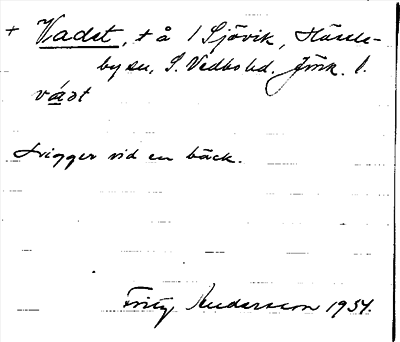 + Vadet, t å / Sjövik, Hässle-
by sn, S. Vedbo hd. Jönk. l.
vádt
Ligger vid en bäck.
Fritz Andersson 1934.